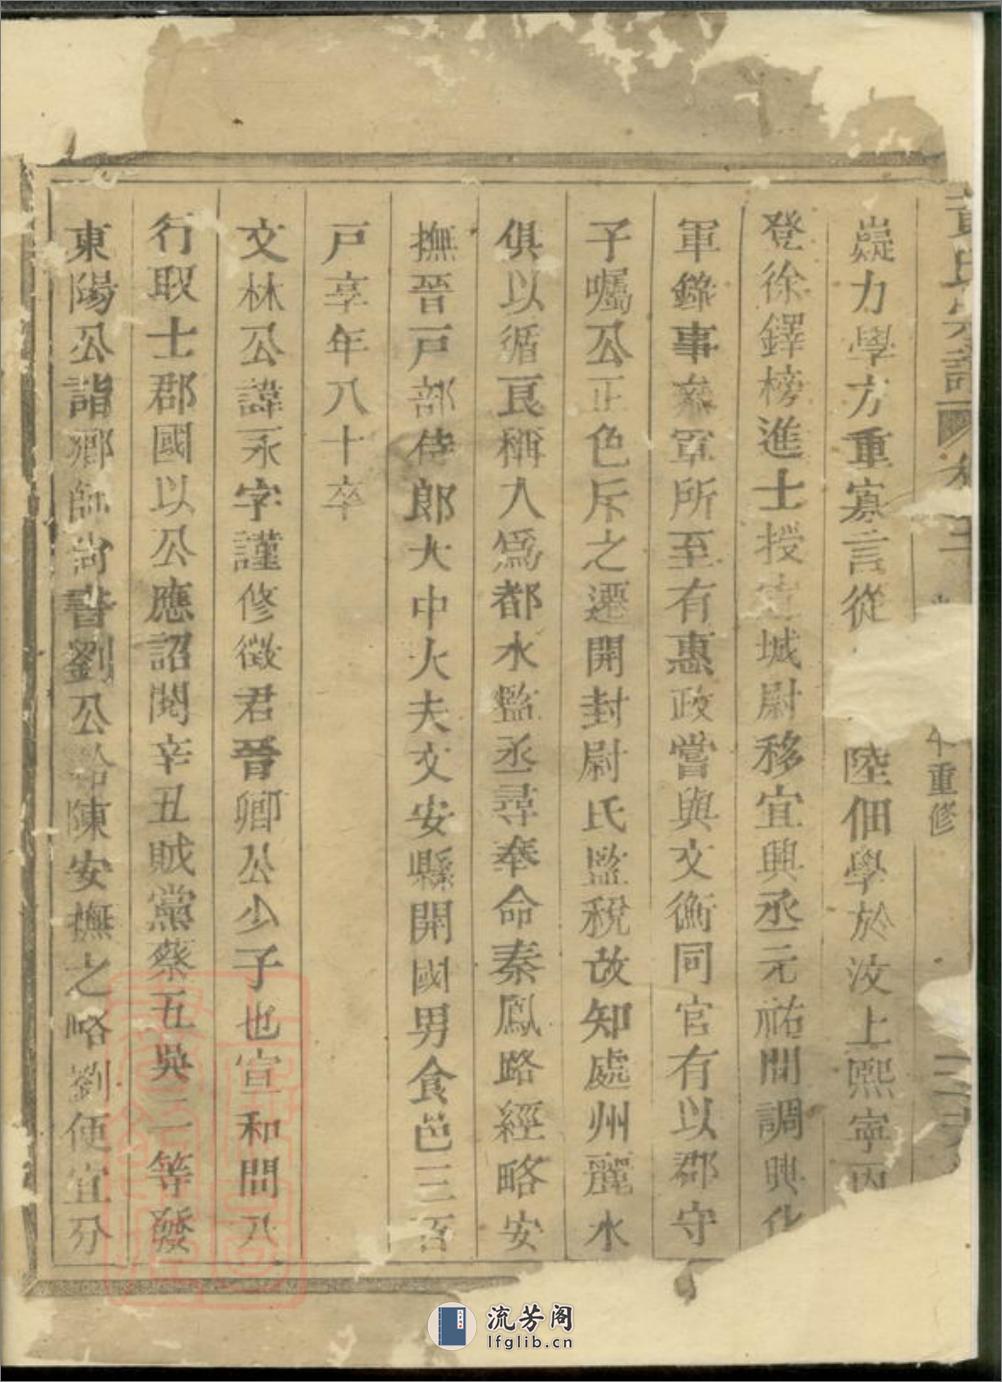 黃氏宗譜
重修
嶷力學方重寡言從陸佃學於汶上熙寧丙
登徐鐸榜進士授城尉移宜興丞元祐間調興化
軍錄事參軍所至有惠政嘗與文衡同官有以郡守
子囑公正色斥之遷開封尉氏監稅故知處州麗水
俱以循良稱入為都水監丞尋奉命秦鳳路經略安
撫晉戸部侍郎大中大夫文安縣開國男食邑三百
戸享年八十卒
文林公諱永字謹修徵君晉卿公少子也宣和間八
行取士郡國以公應詔閱辛丑賊黨蔡五吳二等發
東陽公詣鄉師尚書劉公陳安撫之略劉使宜分
流芳阁
lfglib.cn